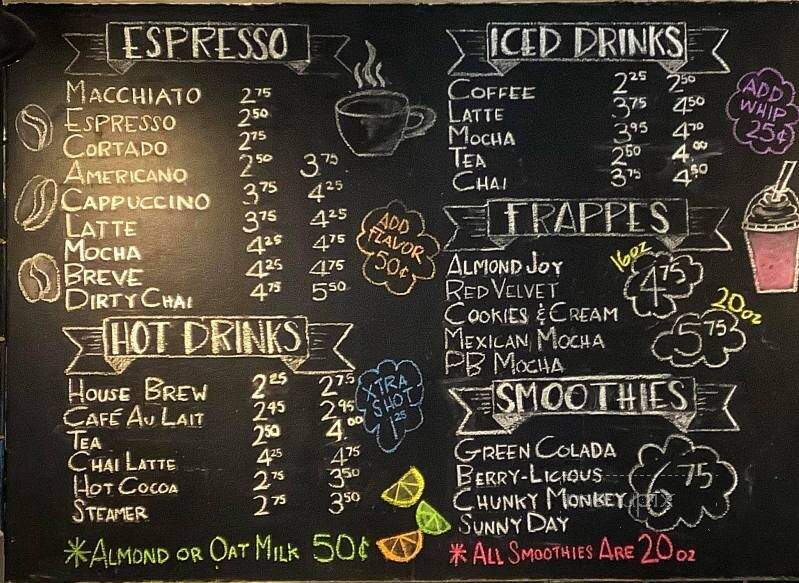 ESPRESSO
MACCHIATO 2.75
ESPRESSO 2.50
CORTADO 2.75
AMERICANO 2.50 3.75
CAPPUCCINO 3.75 4.25
LATTE 3.75 4.25
MOCHA 4.25 4.75
BREVE 4.25 4.75
DIRTY CHAI 4.75 5.50
ADD
FLAVOR
50¢
HOT DRINKS
HOUSE BREW 2.25 2.75
CAFÉ AU LAIT 2.45 2.95
TEA 2.50 4.00
CHAI LATTE 4.25 4.75
HOT COCOA 2.75 3.50
STEAMER 2.75 3.50
XTRA
SHOT
1.25
*ALMOND OR OAT MILK 50¢
ICED DRINKS
COFFEE 2.25 2.50
LATTE 3.75 4.50
MOCHA 3.95 4.70
TEA 2.50 4.00
CHAI 3.75 4.50
ADD
WHIP
25¢
FRAPPES
ALMOND JOY
RED VELVET
COOKIES & CREAM
MEXICAN MOCHA
PB MOCHA
16oz
4.75
20oz
5.75
SMOOTHIES
GREEN COLADA
BERRY-LICIOUS
CHUNKY MONKEY
SUNNY DAY
6.75
*ALL SMOOTHIES ARE 20oz